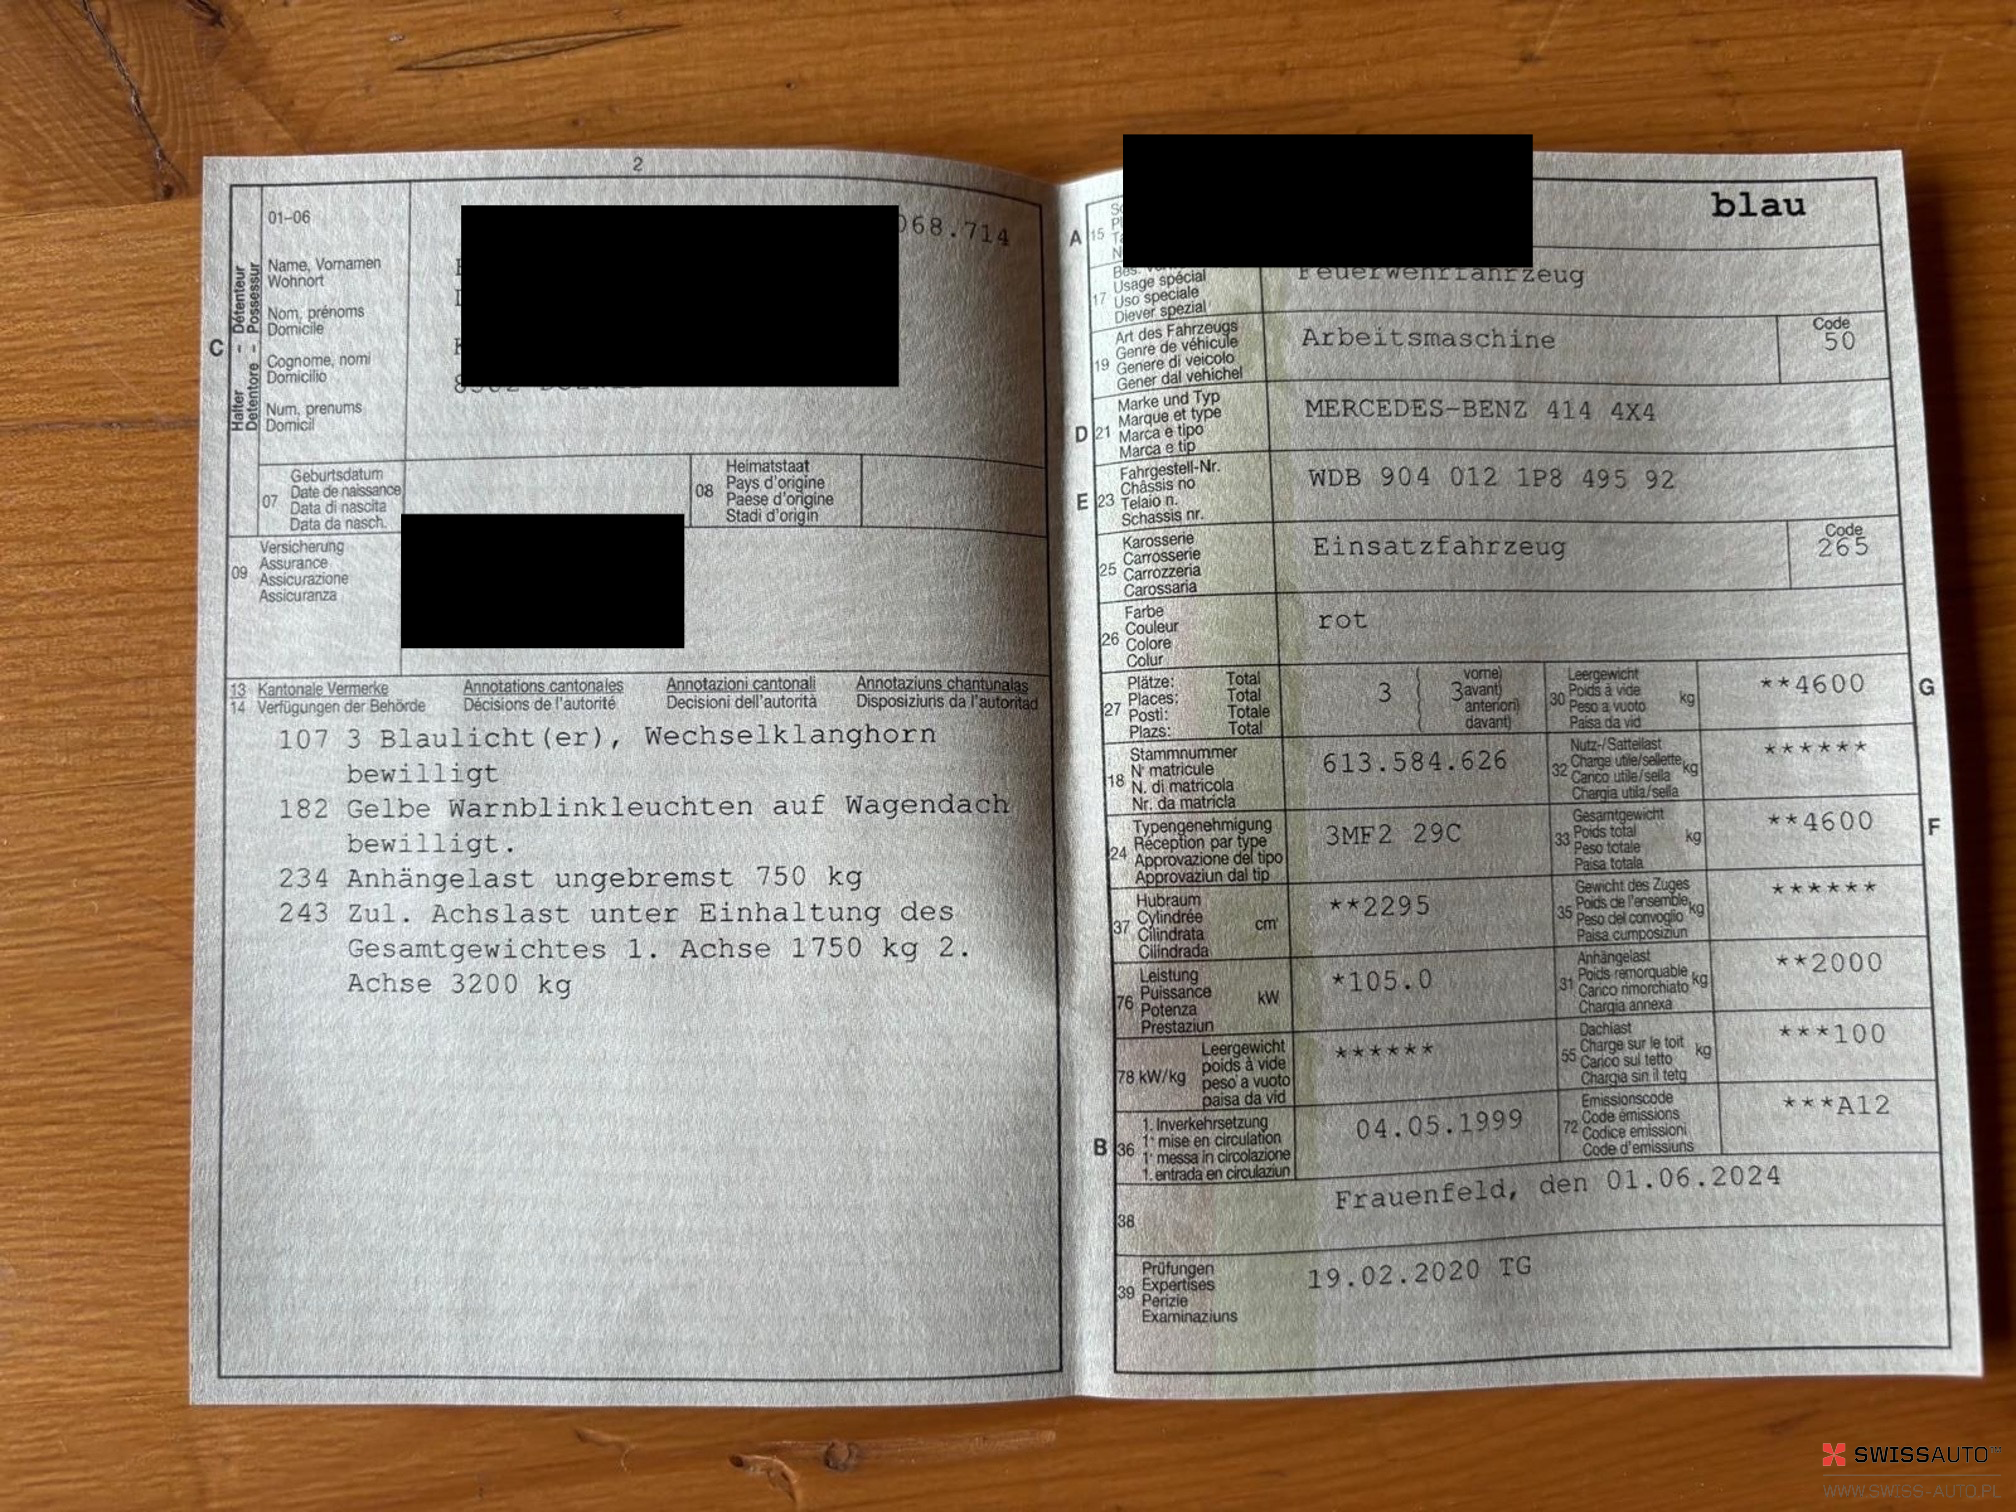 2
01-06
068.714
Name, Vornamen
Wohnort
Nom, prénoms
Domicile
Cognome, nomi
Domicilio
Num, prenums
Domicil
C
Halter - Détenteur
Detentore - Possessur
07
Geburtsdatum
Date de naissance
Data di nascita
Data da nasch.
08
Heimatstaat
Pays d'origine
Paese d'origine
Stadi d'origin
09
Versicherung
Assurance
Assicurazione
Assicuranza
13 Kantonale Vermerke Annotations cantonales Annotazioni cantonali Annotaziuns chantunalas
14 Verfügungen der Behörde Décisions de l'autorité Decisioni dell'autorità Disposiziuns da l'autoritad
107 3 Blaulicht(er), Wechselklanghorn
bewilligt
182 Gelbe Warnblinkleuchten auf Wagendach
bewilligt.
234 Anhängelast ungebremst 750 kg
243 Zul. Achslast unter Einhaltung des
Gesamtgewichtes 1. Achse 1750 kg 2.
Achse 3200 kg
blau
A 15
17
Usage spécial
Uso speciale
Diever spezial
Feuerwehrfahrzeug
19
Art des Fahrzeugs
Genre de véhicule
Genere di veicolo
Gener dal vehichel
Arbeitsmaschine
Code
50
D 21
Marke und Typ
Marque et type
Marca e tipo
Marca e tip
MERCEDES-BENZ 414 4X4
E 23
Fahrgestell-Nr.
Châssis no
Telaio n.
Schassis nr.
WDB 904 012 1P8 495 92
25
Karosserie
Carrosserie
Carrozzeria
Carossaria
Einsatzfahrzeug
Code
265
26
Farbe
Couleur
Colore
Colur
rot
27
Plätze: Total
Places: Total
Posti: Totale
Plazs: Total
3 ( 3 vorne)
( avant)
( anteriori)
( davant)
30
Leergewicht
Poids à vide kg
Peso a vuoto
Paisa da vid
**4600
G
18
Stammnummer
N° matricule
N. di matricola
Nr. da matricla
613.584.626
32
Nutz-/Sattellast
Charge utile/sellette kg
Carico utile/sella
Chargia utila/sella
******
24
Typengenehmigung
Réception par type
Approvazione del tipo
Approvaziun dal tip
3MF2 29C
33
Gesamtgewicht
Poids total kg
Peso totale
Paisa totala
**4600
F
37
Hubraum
Cylindrée cm³
Cilindrata
Cilindrada
**2295
35
Gewicht des Zuges
Poids de l'ensemble kg
Peso del convoglio
Paisa cumposiziun
******
76
Leistung
Puissance kW
Potenza
Prestaziun
*105.0
31
Anhängelast
Poids remorquable kg
Carico rimorchiato
Chargia annexa
**2000
78 kW/kg
Leergewicht
poids à vide
peso a vuoto
paisa da vid
******
55
Dachlast
Charge sur le toit kg
Carico sul tetto
Chargia sin il tetg
***100
B 36
1. Inverkehrsetzung
1° mise en circulation
1° messa in circolazione
1. entrada en circulaziun
04.05.1999
72
Emissionscode
Code émissions
Codice emissioni
Code d'emissiuns
***A12
38
Frauenfeld, den 01.06.2024
39
Prüfungen
Expertises
Perizie
Examinaziuns
19.02.2020 TG
SWISSAUTO
WWW.SWISS-AUTO.PL